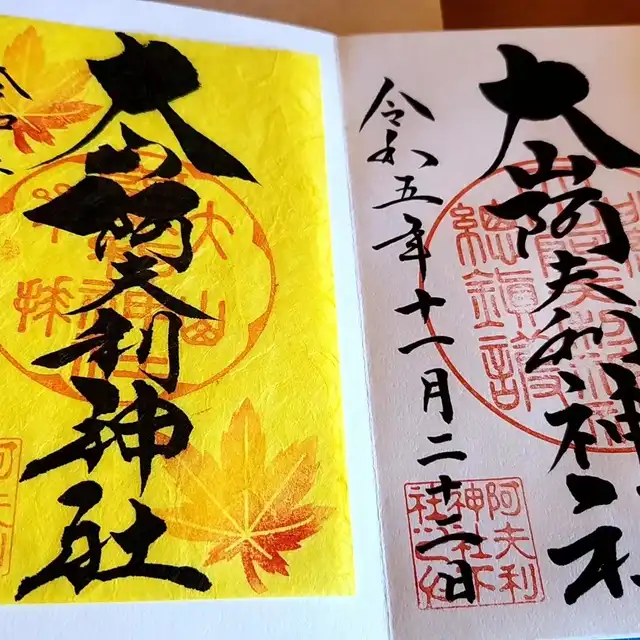 大山阿夫利神社
總鎮護
令和五年十一月二十二日
阿夫利
神社下
大山阿夫利神社
阿夫利